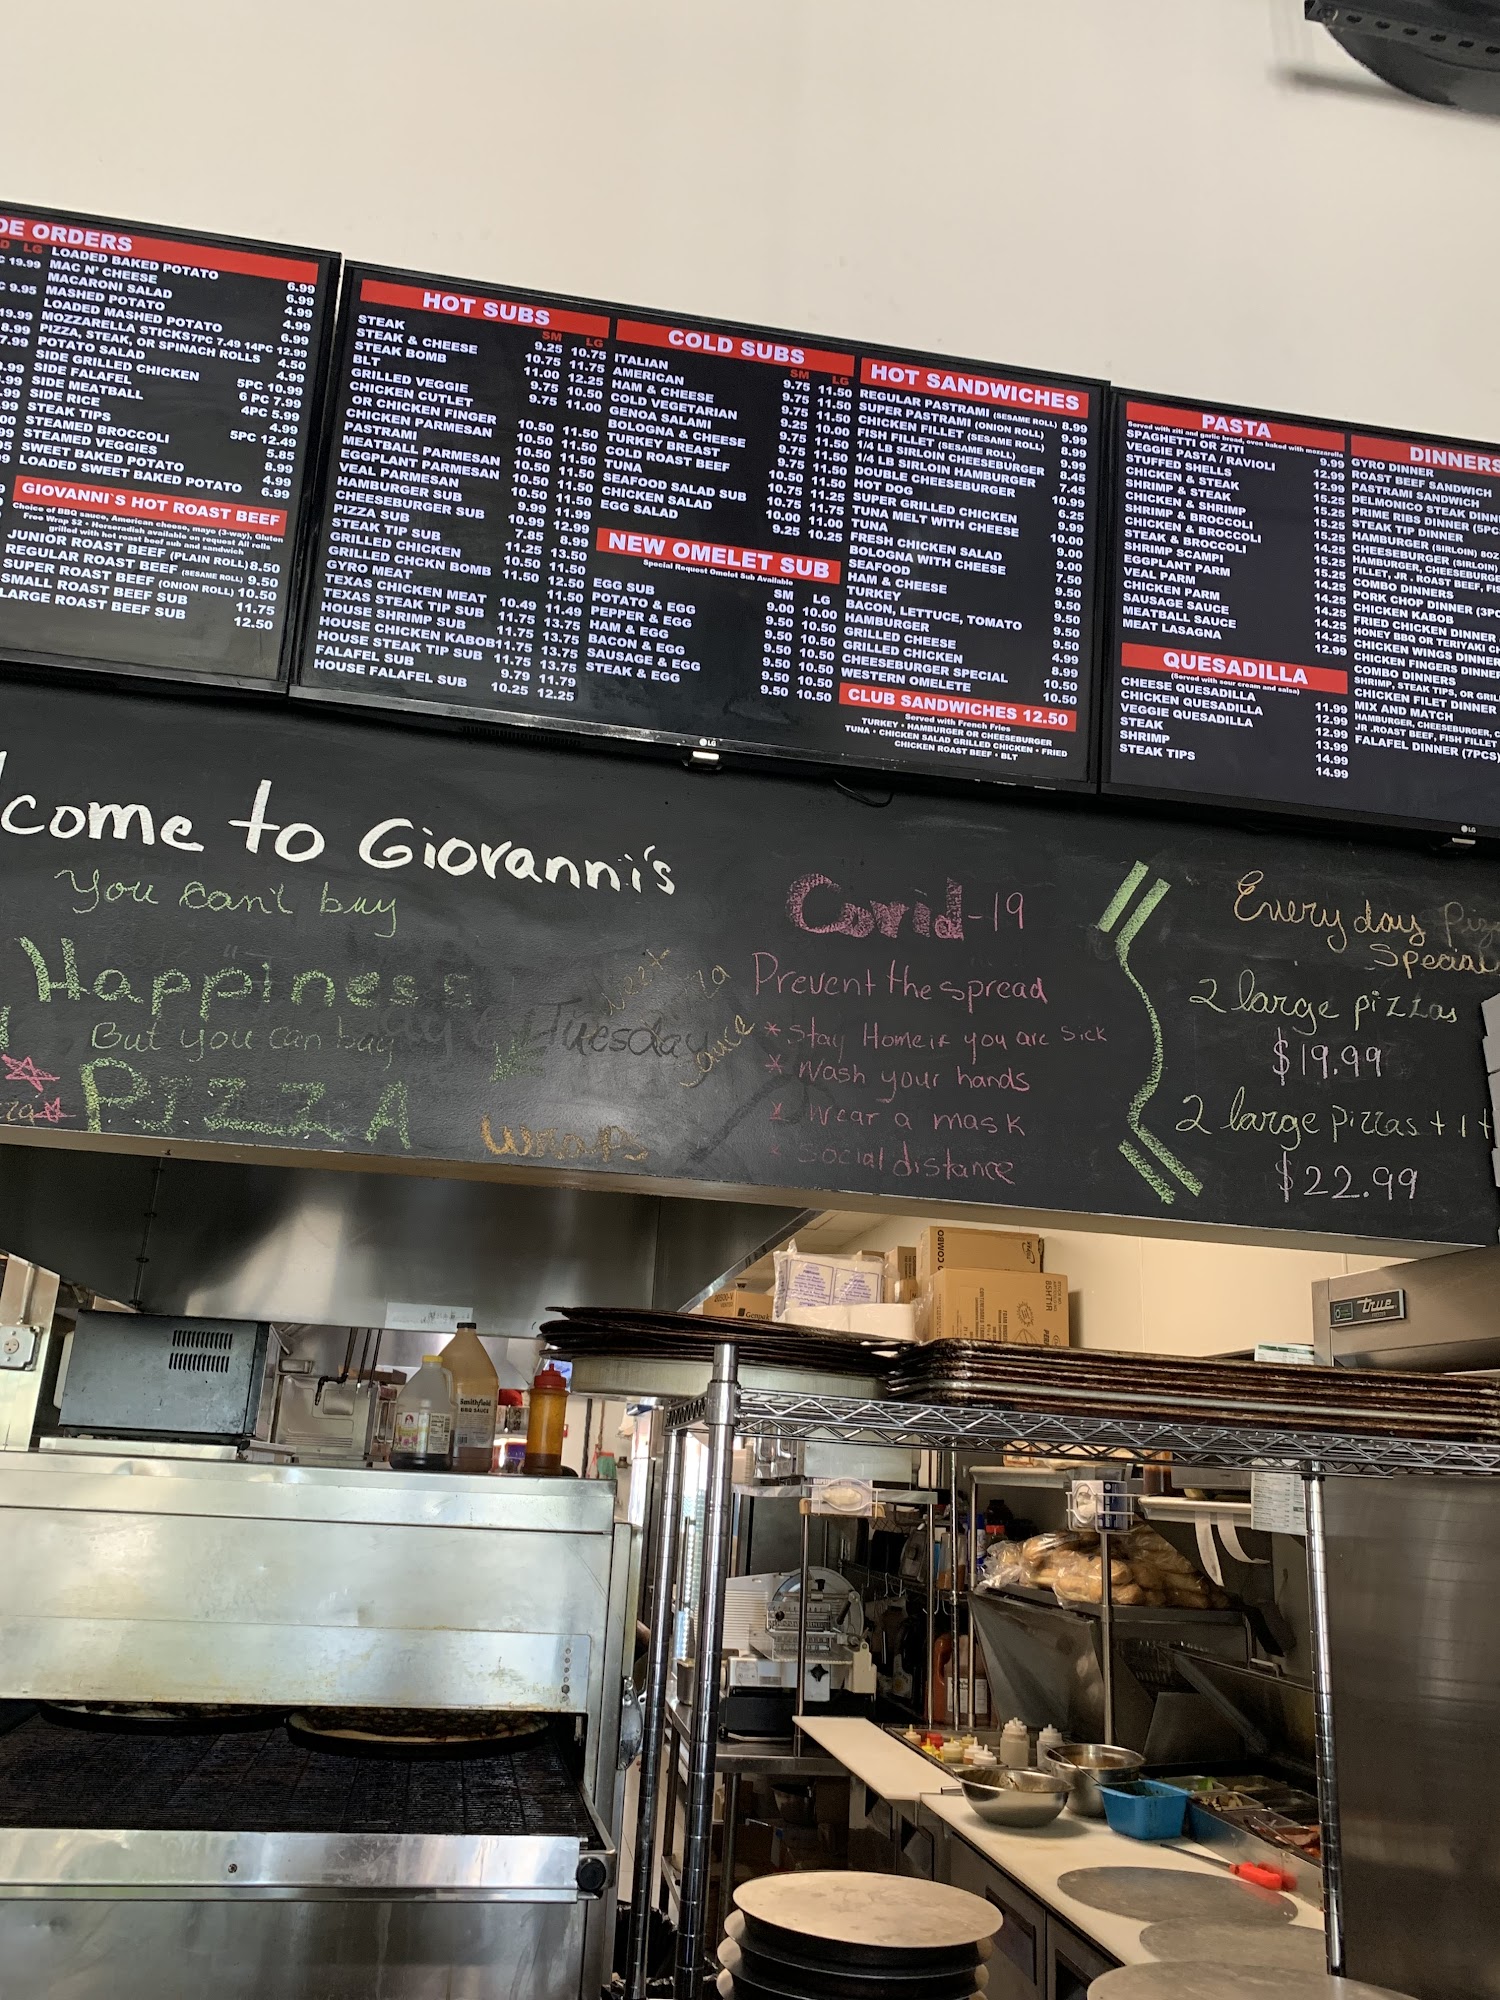 DE ORDERS
LG
LOADED BAKED POTATO 6.99
MAC N' CHEESE 6.99
MACARONI SALAD 4.99
MASHED POTATO 4.99
LOADED MASHED POTATO 6.99
MOZZARELLA STICKS 7PC 7.49 14PC 12.99
PIZZA, STEAK, OR SPINACH ROLLS 4.50
POTATO SALAD 4.99
SIDE GRILLED CHICKEN 5PC 10.99
SIDE FALAFEL 6 PC 7.99
SIDE MEATBALL 4PC 5.99
SIDE RICE 4.99
STEAK TIPS 5PC 12.49
STEAMED BROCCOLI 5.85
STEAMED VEGGIES 8.99
SWEET BAKED POTATO 4.99
LOADED SWEET BAKED POTATO 6.99
GIOVANNI`S HOT ROAST BEEF
Choice of BBQ sauce, American cheese, mayo (3-way), Gluten
Free Wrap $2 • Horseradish available on request All rolls
Grilled with hot roast beef sub and sandwich
JUNIOR ROAST BEEF (PLAIN ROLL) 8.50
REGULAR ROAST BEEF (SESAME ROLL) 9.50
SUPER ROAST BEEF (ONION ROLL) 10.50
SMALL ROAST BEEF SUB 11.75
LARGE ROAST BEEF SUB 12.50
HOT SUBS
SM LG
STEAK 9.25 10.75
STEAK & CHEESE 10.75 11.75
STEAK BOMB 11.00 12.25
BLT 9.75 10.50
GRILLED VEGGIE 9.75 11.00
CHICKEN CUTLET
OR CHICKEN FINGER 10.50 11.50
CHICKEN PARMESAN 10.50 11.50
PASTRAMI 10.50 11.50
MEATBALL PARMESAN 10.50 11.50
EGGPLANT PARMESAN 10.50 11.50
VEAL PARMESAN 10.50 11.50
HAMBURGER SUB 9.99 11.99
CHEESEBURGER SUB 10.99 12.99
PIZZA SUB 7.85 8.99
STEAK TIP SUB 11.25 13.50
GRILLED CHICKEN 10.50 11.50
GRILLED CHICKN BOMB 11.50 12.50
GYRO MEAT 11.50
TEXAS CHICKEN MEAT 10.49 11.49
TEXAS STEAK TIP SUB 11.75 13.75
HOUSE SHRIMP SUB 11.75 13.75
HOUSE CHICKEN KABOB 11.75 13.75
HOUSE STEAK TIP SUB 11.75 13.75
FALAFEL SUB 9.79 11.79
HOUSE FALAFEL SUB 10.25 12.25
COLD SUBS
SM LG
ITALIAN 9.75 11.50
AMERICAN 9.75 11.50
HAM & CHEESE 9.75 11.50
COLD VEGETARIAN 9.25 10.00
GENOA SALAMI 9.75 11.50
BOLOGNA & CHEESE 9.75 11.50
TURKEY BREAST
COLD ROAST BEEF
TUNA
SEAFOOD SALAD SUB
CHICKEN SALAD 10.00 11.00
EGG SALAD 9.25 10.25
NEW OMELET SUB
Special Request Omelet Sub Available
SM LG
EGG SUB 9.00 10.00
POTATO & EGG 9.50 10.50
PEPPER & EGG 9.50 10.50
HAM & EGG 9.50 10.50
BACON & EGG 9.50 10.50
SAUSAGE & EGG 9.50 10.50
STEAK & EGG 9.50 10.50
HOT SANDWICHES
REGULAR PASTRAMI (SESAME ROLL) 8.99
SUPER PASTRAMI (ONION ROLL) 9.99
CHICKEN FILLET (SESAME ROLL) 8.99
FISH FILLET (SESAME ROLL) 9.99
1/4 LB SIRLOIN CHEESEBURGER 9.45
1/4 LB SIRLOIN HAMBURGER 7.45
DOUBLE CHEESEBURGER 10.99
HOT DOG 6.25
SUPER GRILLED CHICKEN 9.99
TUNA MELT WITH CHEESE 10.00
TUNA 9.00
FRESH CHICKEN SALAD 9.00
BOLOGNA WITH CHEESE 7.50
SEAFOOD 9.50
HAM & CHEESE 9.50
TURKEY 9.50
BACON, LETTUCE, TOMATO 9.50
HAMBURGER 9.50
GRILLED CHEESE 4.99
GRILLED CHICKEN 8.99
CHEESEBURGER SPECIAL 10.50
WESTERN OMELETE 10.50
CLUB SANDWICHES 12.50
Served with French Fries
TURKEY • HAMBURGER OR CHEESEBURGER
TUNA • CHICKEN SALAD GRILLED CHICKEN • FRIED
CHICKEN ROAST BEEF • BLT
PASTA
Served with ziti and garlic bread, oven baked with mozzarella
SPAGHETTI OR ZITI 9.99
VEGGIE PASTA / RAVIOLI 12.99
STUFFED SHELLS 12.99
CHICKEN & STEAK 15.25
SHRIMP & STEAK 15.25
CHICKEN & SHRIMP 15.25
SHRIMP & BROCCOLI 15.25
CHICKEN & BROCCOLI 14.25
STEAK & BROCCOLI 15.25
SHRIMP SCAMPI 15.25
EGGPLANT PARM 14.25
VEAL PARM 14.25
CHICKEN PARM 14.25
SAUSAGE SAUCE 14.25
MEATBALL SAUCE 14.25
MEAT LASAGNA 12.99
QUESADILLA
(Served with sour cream and salsa)
CHEESE QUESADILLA 11.99
CHICKEN QUESADILLA 12.99
VEGGIE QUESADILLA 12.99
STEAK 13.99
SHRIMP 14.99
STEAK TIPS 14.99
DINNERS
GYRO DINNER
ROAST BEEF SANDWICH
PASTRAMI SANDWICH
DELMONICO STEAK DINN
PRIME RIBS DINNER (5PC
STEAK TIP DINNER
HAMBURGER (SIRLOIN) 8OZ
CHEESEBURGER (SIRLOIN)
HAMBURGER, CHEESEBURGE
FILLET, JR. ROAST BEEF, FIS
COMBO DINNERS
PORK CHOP DINNER (3PC
CHICKEN KABOB
FRIED CHICKEN DINNER
HONEY BBQ OR TERIYAKI C
CHICKEN WINGS DINNER
CHICKEN FINGERS DINNER
COMBO DINNERS
SHRIMP, STEAK TIPS, OR GRIL
CHICKEN FILET DINNER
MIX AND MATCH
HAMBURGER, CHEESEBURGER, C
JR .ROAST BEEF, FISH FILLET
FALAFEL DINNER (7PCS)
LG
LG
lcome to Giovanni's
You can't buy
Happiness
But you can buy
PIZZA
Tuesday
sauce
wraps
Covid-19
Prevent the spread
* Stay Home if you are sick
* Wash your hands
* Wear a mask
* Social distance
Every day Piz
Special
2 large pizzas
$19.99
2 large pizzas + 1 +
$22.99
true
Genpak
Smithfield
BBQ SAUCE